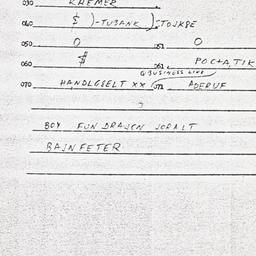 030 KREMER
040 $ )-TUBANK ) TOJKPE
050 0 051 0
060 $ 061 POCTATIK
G BUSINESS LINE
070 HANDLGEELT XX 071 ADERUF
BOY FUN DRAUCN JORALT
BAJNFETER